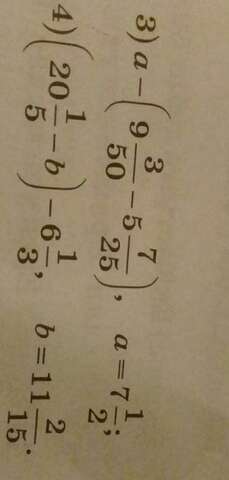 3) a − (9 3/50 − 5 7/25), a = 7 1/2;
4) (20 1/5 − b) − 6 1/3, b = 11 2/15.